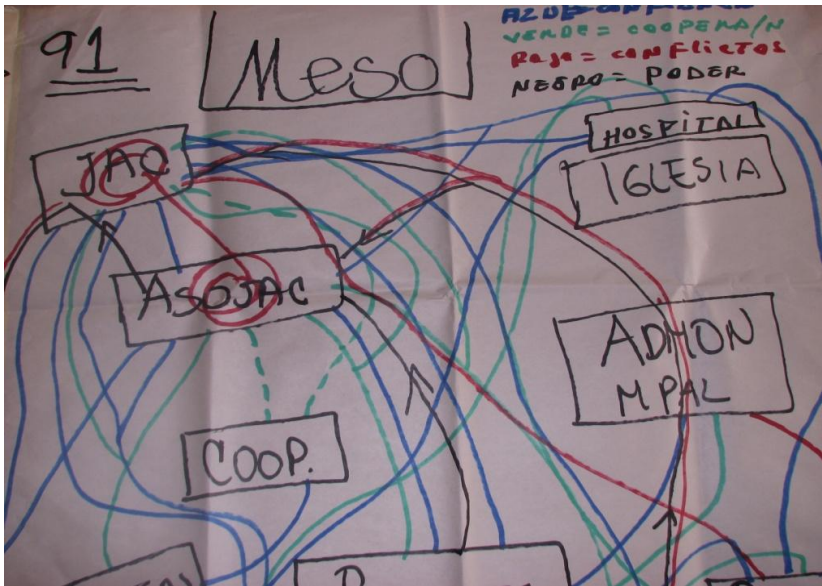 91
Meso
VERDE = COOPERA/N
Rojo = CONFLICTOS
NEGRO = PODER
JAC
HOSPITAL
IGLESIA
ASOJAC
ADMON
MPAL
COOP.